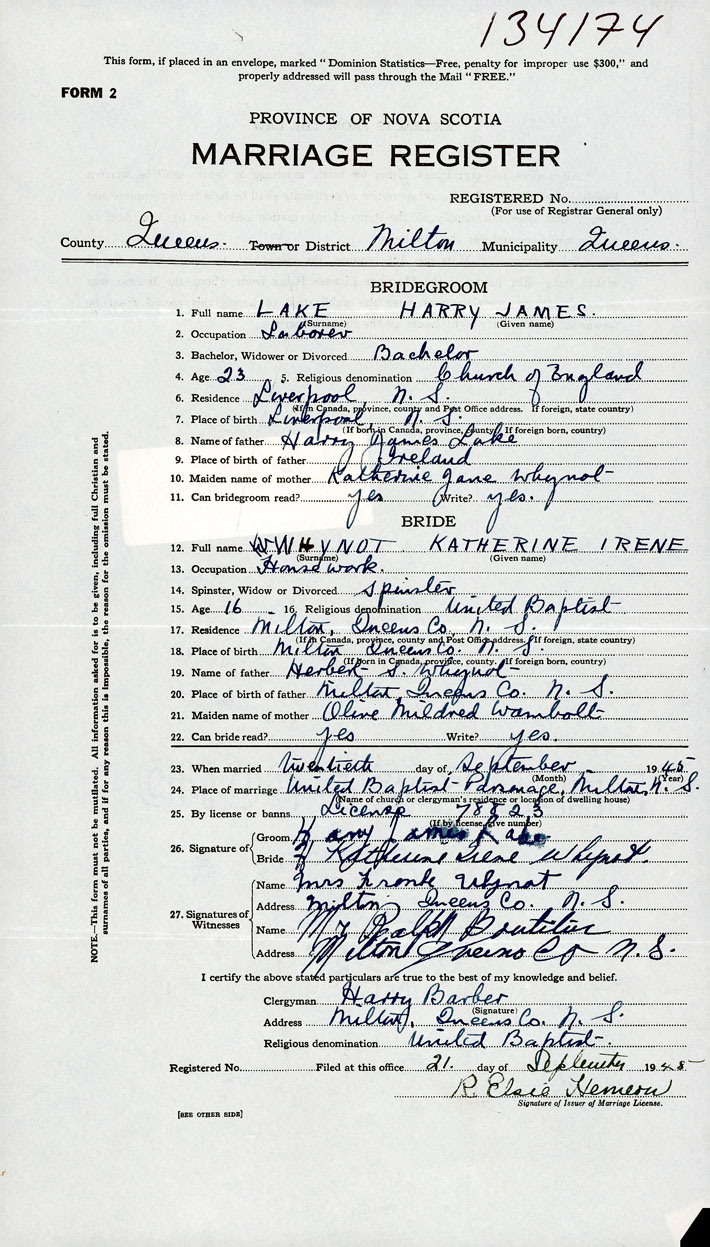 134174
This form, if placed in an envelope, marked "Dominion Statistics—Free, penalty for improper use $300," and
properly addressed will pass through the Mail "FREE."
FORM 2
PROVINCE OF NOVA SCOTIA
MARRIAGE REGISTER
REGISTERED No.
(For use of Registrar General only)
County Queens. Town or District Milton Municipality Queens.
BRIDEGROOM
1. Full name LAKE HARRY JAMES.
(Surname) (Given name)
2. Occupation Laborer
3. Bachelor, Widower or Divorced Bachelor
4. Age 23 5. Religious denomination Church of England
6. Residence Liverpool N. S.
(If in Canada, province, county and Post Office address. If foreign, state country)
7. Place of birth Liverpool N. S.
(If born in Canada, province, county. If foreign born, country)
8. Name of father Harry James Lake
9. Place of birth of father Ireland
10. Maiden name of mother Katherine Jane Whynot
11. Can bridegroom read? yes Write? yes.
BRIDE
12. Full name WHYNOT KATHERINE IRENE
(Surname) (Given name)
13. Occupation Housework.
14. Spinster, Widow or Divorced Spinster
15. Age 16 16. Religious denomination United Baptist
17. Residence Milton, Queens Co. N. S.
(If in Canada, province, county and Post Office address. If foreign, state country)
18. Place of birth Milton Queens Co. N. S.
(If born in Canada, province, county. If foreign born, country)
19. Name of father Herbert S. Whynot
20. Place of birth of father Milton, Queens Co. N. S.
21. Maiden name of mother Olive Mildred Wambolt
22. Can bride read? yes Write? yes.
23. When married twentieth day of September 1945
(Month) (Year)
24. Place of marriage United Baptist Parsonage, Milton, N. S.
(Name of church or clergyman's residence or location of dwelling house)
25. By license or banns License 78823
(If by license, give number)
26. Signature of Groom Harry James Lake
Bride Katherine Irene Whynot
27. Signatures of Witnesses
Name Mrs Frank Whynot
Address Milton Queens Co. N. S.
Name Mr Ralph Boutilier
Address Milton Queens Co N. S.
I certify the above stated particulars are true to the best of my knowledge and belief.
Clergyman Harry Barber
(Signature)
Address Milton, Queens Co. N. S.
Religious denomination United Baptist.
Registered No. Filed at this office 21. day of September 1945
R. Elsie Hemeon
Signature of Issuer of Marriage License.
[SEE OTHER SIDE]
NOTE.—This form must not be mutilated. All information asked for is to be given, including full Christian and
surnames of all parties, and if for any reason this is impossible, the reason for the omission must be stated.